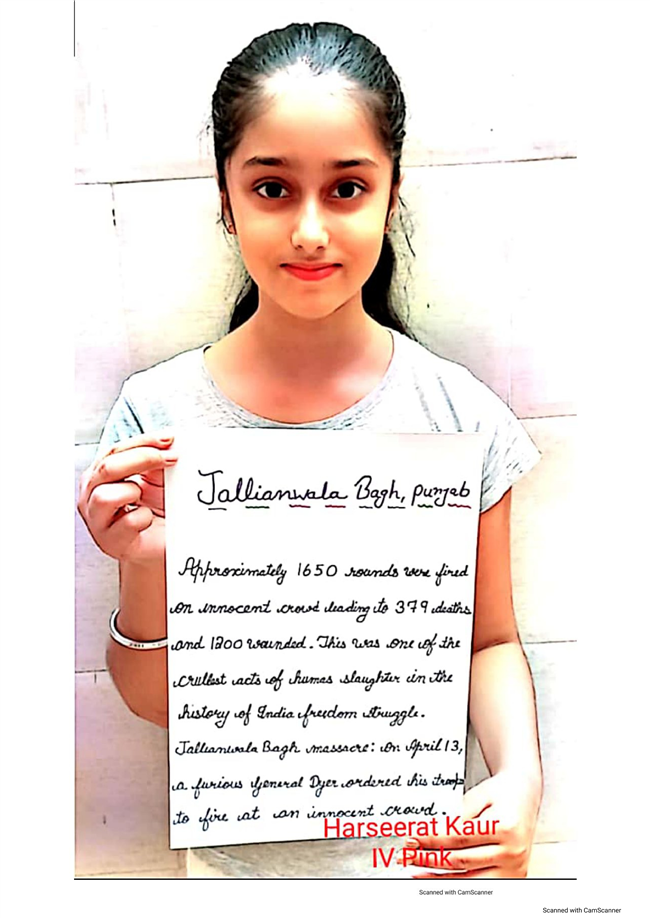 Jallianwala Bagh, Punjab
Approximately 1650 rounds were fired
on innocent crowd leading to 379 deaths
and 1200 wounded. This was one of the
crullest acts of humas slaughter in the
history of India freedom struggle.
Jallianwala Bagh massacre: On April 13,
a furious General Dyer ordered his troops
to fire at an innocent crowd.
Harseerat Kaur
IV Pink
Scanned with CamScanner
Scanned with CamScanner